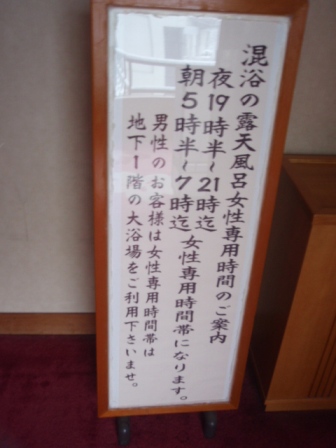 混浴の露天風呂女性専用時間のご案内
夜19時半~21時迄
朝5時半~7時迄女性専用時間帯になります。
男性のお客様は女性専用時間帯は
地下1階の大浴場をご利用下さいませ。